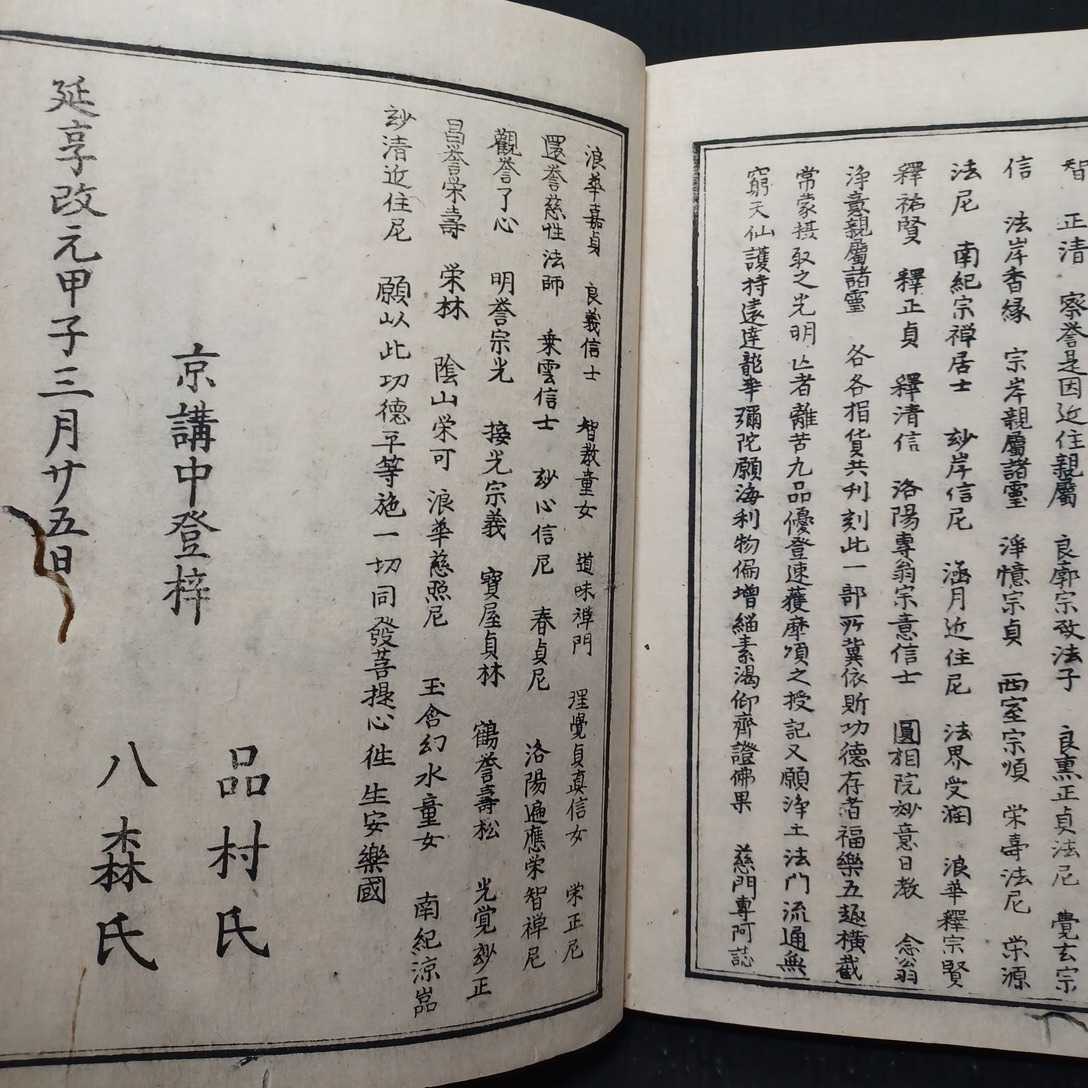 智　正清　察誉是因近住親屬　良廓宗致法子　良熏正貞法尼　覺玄宗
信　法岸香縁　宗岸親屬諸霊　淨憶宗貞　西室宗頌　栄壽法尼　栄源
法尼　南紀宗禅居士　玅岸信尼　涵月近住尼　法界受潤　浪華釋宗賢
釋祐賢　釋正貞　釋清信　洛陽專翁宗意信士　圓相院玅意日教　念翁
浄意親屬諸霊　各各捐貨共刋刻此一部所冀依斯功德存者福樂五趣横截
常蒙摂取之光明亡者離苦九品優登速獲摩頂之授記又願浄土法門流通無
窮天仙護持遠達龍華彌陀願海利物偏增緇素渇仰齊證佛果　慈門專阿誌
浪華嘉貞　良義信士　智教童女　道味禅門　理覺貞真信女　栄正尼
還誉慈性法師　乗雲信士　玅心信尼　春貞尼　洛陽遍應栄智禅尼
觀誉了心　明誉宗光　接光宗義　寶屋貞林　鶴誉壽松　光覚玅正
昌誉栄壽　栄林　陰山栄可　浪華慈照尼　玉含幻水童女　南紀涼嵓
玅清近住尼　願以此功德平等施一切同發菩提心徃生安樂國
京講中登梓
品村氏
八森氏
延享改元甲子三月廿五日